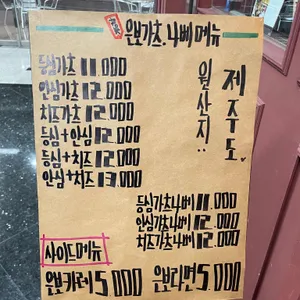 원보가츠.나베메뉴
등심가츠 11.000
안심가츠 12.000
치즈가츠 12.000
등심+안심 12.000
등심+치즈 12.000
안심+치즈 13.000
원산지:
제주도.
등심가츠나베 11.000
안심가츠나베 12.000
치즈가츠나베 12.000
사이드메뉴
원보카레 5.000 원보라면 5.000